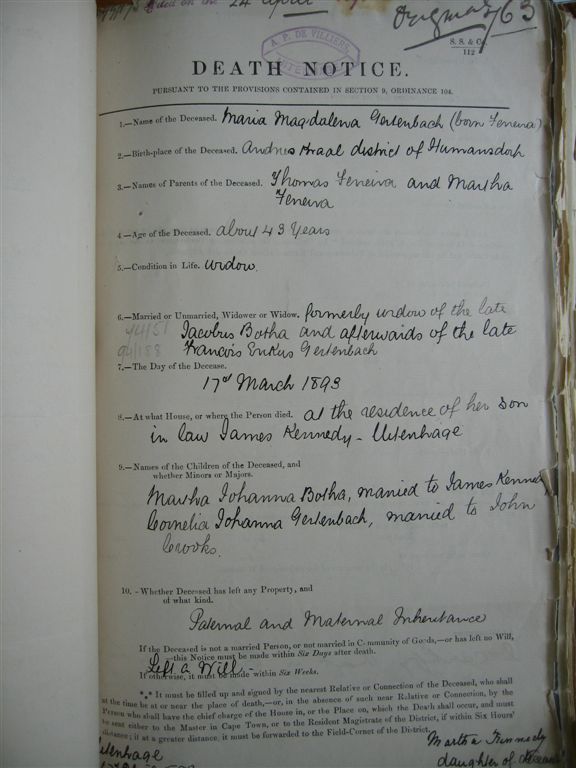 24 April
63
A. P. DE VILLIERS,
S. S. & Co.
112
DEATH NOTICE.
PURSUANT TO THE PROVISIONS CONTAINED IN SECTION 9, ORDINANCE 104.
1.—Name of the Deceased. Maria Magdalena Gertenbach (born Fereira)
2.—Birth-place of the Deceased. Andries Kraal district of Humansdorp
3.—Names of Parents of the Deceased. Thomas Fereira and Martha
Fereira
4.—Age of the Deceased. about 43 Years
5.—Condition in Life. widow.
6.—Married or Unmarried, Widower or Widow. formerly widow of the late
Jacobus Botha and afterwards of the late
Francois Gertenbach
7.—The Day of the Decease.
17th March 1893
8.—At what House, or where the Person died. at the residence of her son
in law James Kennedy - Uitenhage
9.—Names of the Children of the Deceased, and
whether Minors or Majors.
Martha Johanna Botha, married to James Kenned
Cornelia Johanna Gertenbach, married to John
Crooks.
10. - Whether Deceased has left any Property, and
of what kind.
Paternal and Maternal Inheritance
If the Deceased is not a married Person, or not married in Community of Goods,—or has left no Will,
—this Notice must be made within Six Days after death.
Left a Will.
If otherwise, it must be made within Six Weeks.
*** It must be filled up and signed by the nearest Relative or Connection of the Deceased, who shall
at the time be at or near the place of death,—or, in the absence of such near Relative or Connection, by the
Person who shall have the chief charge of the House in, or the Place on, which the Death shall occur, and must
be sent either to the Master in Cape Town, or to the Resident Magistrate of the District, if within Six Hours'
distance; if at a greater distance it must be forwarded to the Field-Cornet of the District.
Martha Kennedy
Uitenhage
daughter of deceased